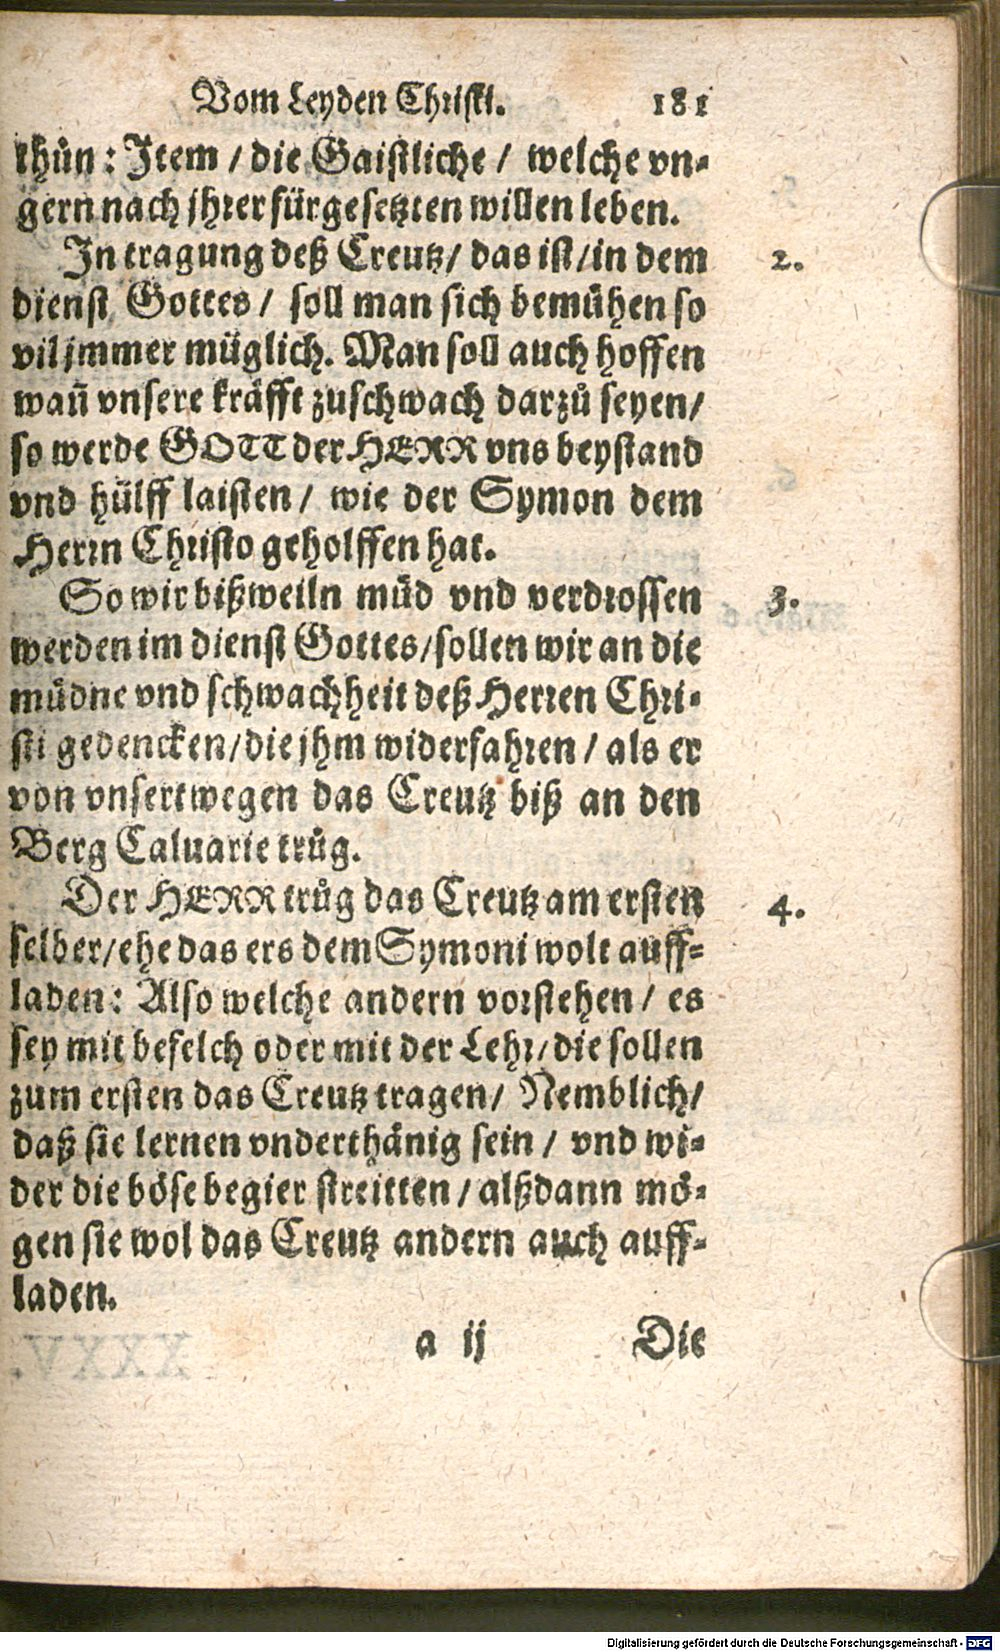 Vom Leyden Christi. 181
thůn: Item / die Gaistliche / welche vn-
gern nach jhrer fürgesetzten willen leben.
In tragung deß Creutz / das ist / in dem 2.
dienst Gottes / soll man sich bemühen so
vil jmmer müglich. Man soll auch hoffen
wañ vnsere kräfft zuschwach darzů seyen /
so werde GOTT der HERR vns beystand
vnd hülff laisten / wie der Symon dem
Herrn Christo geholffen hat.
So wir bißweiln müd vnd verdrossen 3.
werden im dienst Gottes / sollen wir an die
müdne vnd schwachheit deß Herren Chri-
sti gedencken / die jhm widerfahren / als er
von vnsertwegen das Creutz biß an den
Berg Caluarie trůg.
Der HERR trůg das Creutz am ersten 4.
selber / ehe das ers dem Symoni wolt auff-
laden: Also welche andern vorstehen / es
sey mit befelch oder mit der Lehr / die sollen
zum ersten das Creutz tragen / Nemblich /
daß sie lernen vnderthänig sein / vnd wi-
der die böse begier streitten / alßdann mö-
gen sie wol das Creutz andern auch auff-
laden.
a ij Die
Digitalisierung gefördert durch die Deutsche Forschungsgemeinschaft - DFG